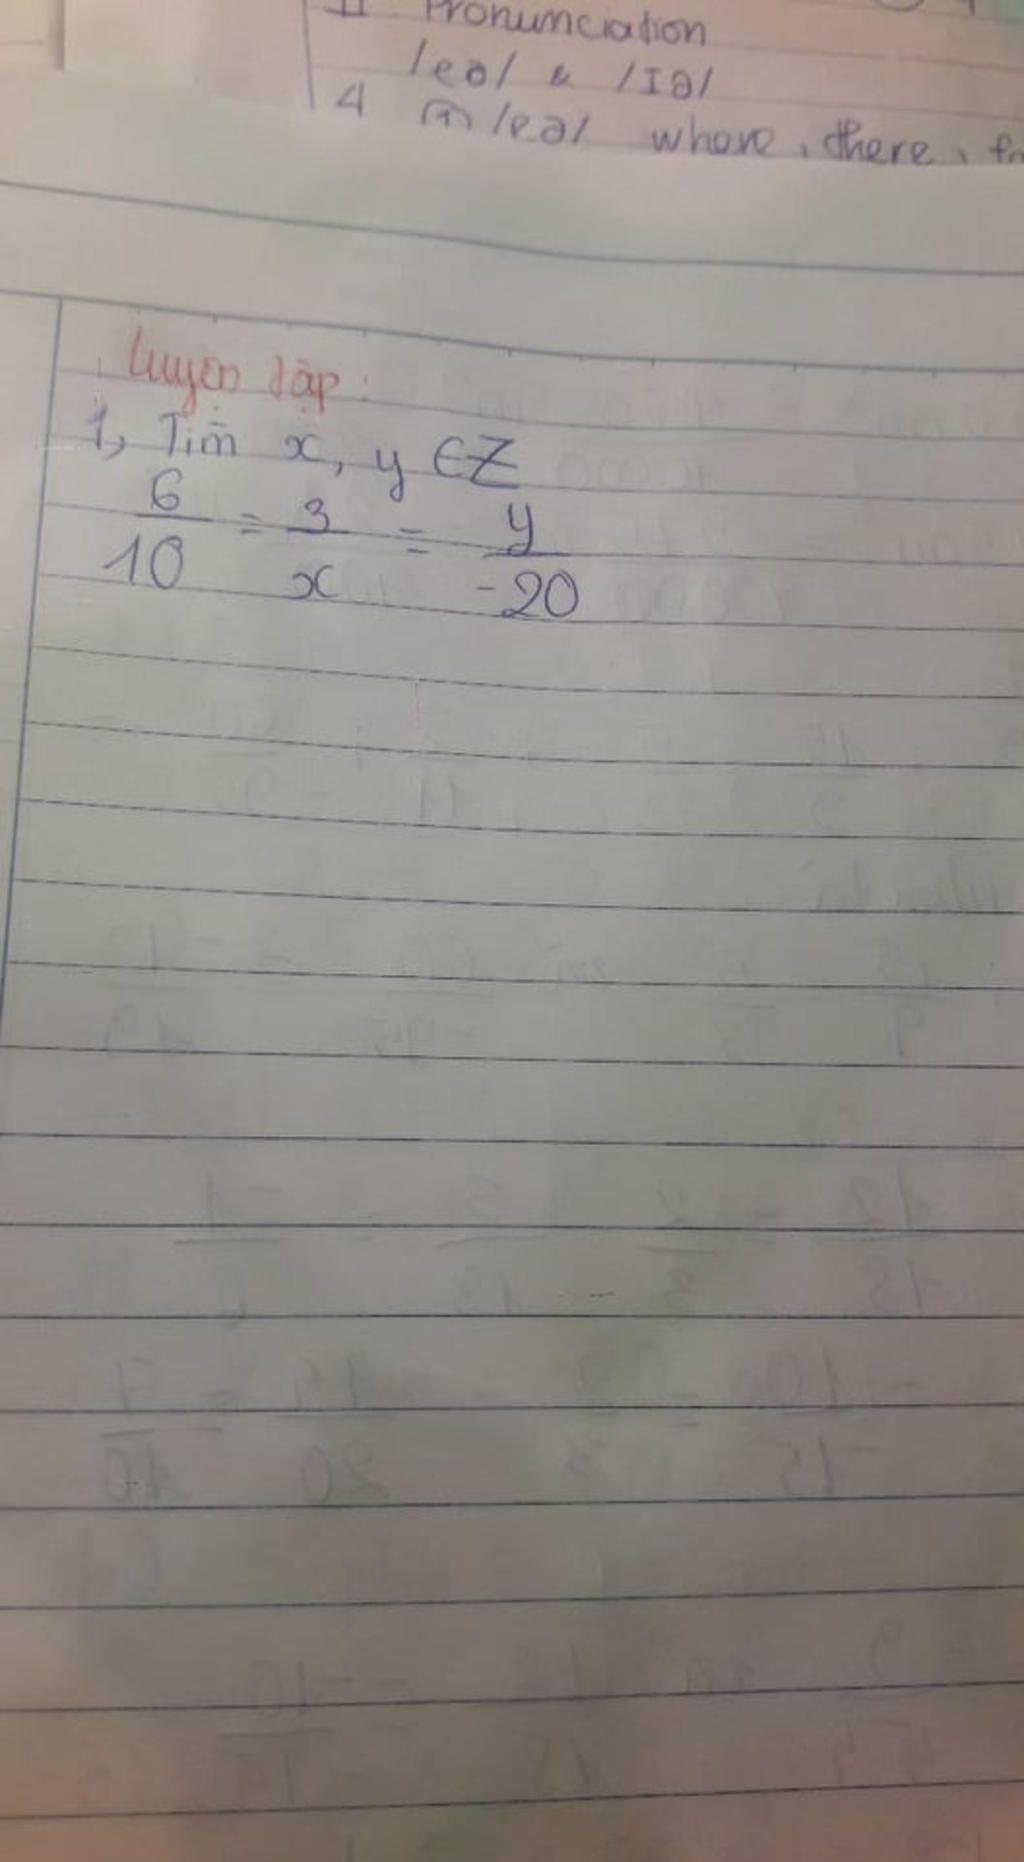 II Pronunciation
/eə/ & /ɪə/
4 ① /eə/ where, there,
Luyện tập:
1, Tìm x, y ∈ Z
6/10 = 3/x = y/-20